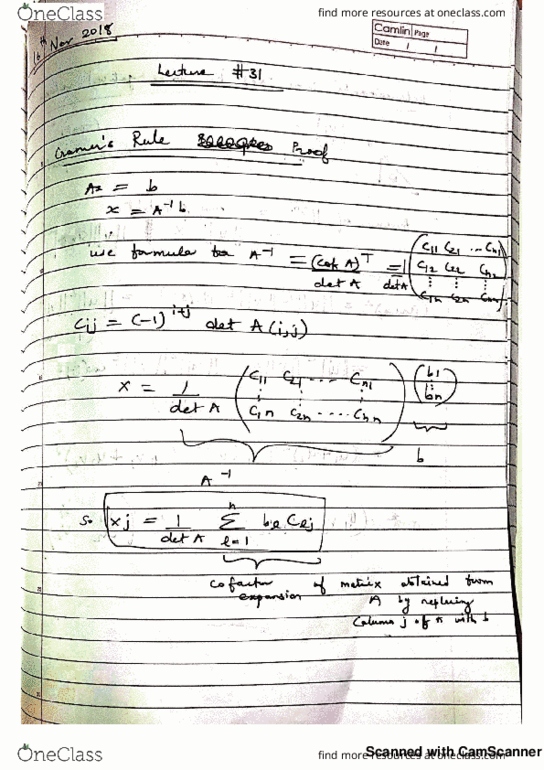 OneClass
find more resources at oneclass.com
16th Nov 2018
Camlin Page
Date / /
Lecture #31
Cramer's Rule Proof
Ax = b
x = A⁻¹ b
use formula for A⁻¹ = (cof A)ᵀ / det A = 1/det A ( C11 C21 ... Cn1
C12 C22 Cn2
⋮ ⋮ ⋮
C1n C2n Cnn )
Cij = (-1)^i+j det A(i,j)
x = 1/det A ( C11 C21 ..... Cn1
⋮ ⋮ ⋮
C1n C2n ..... Cnn ) ( b1
⋮
bn )
A⁻¹
b
So xj = 1/det A Σ n l=1 bl Clj
cofactor expansion of matrix obtained from
A by replacing
Column j of A with b
OneClass
find more resources at oneclass.com
Scanned with CamScanner